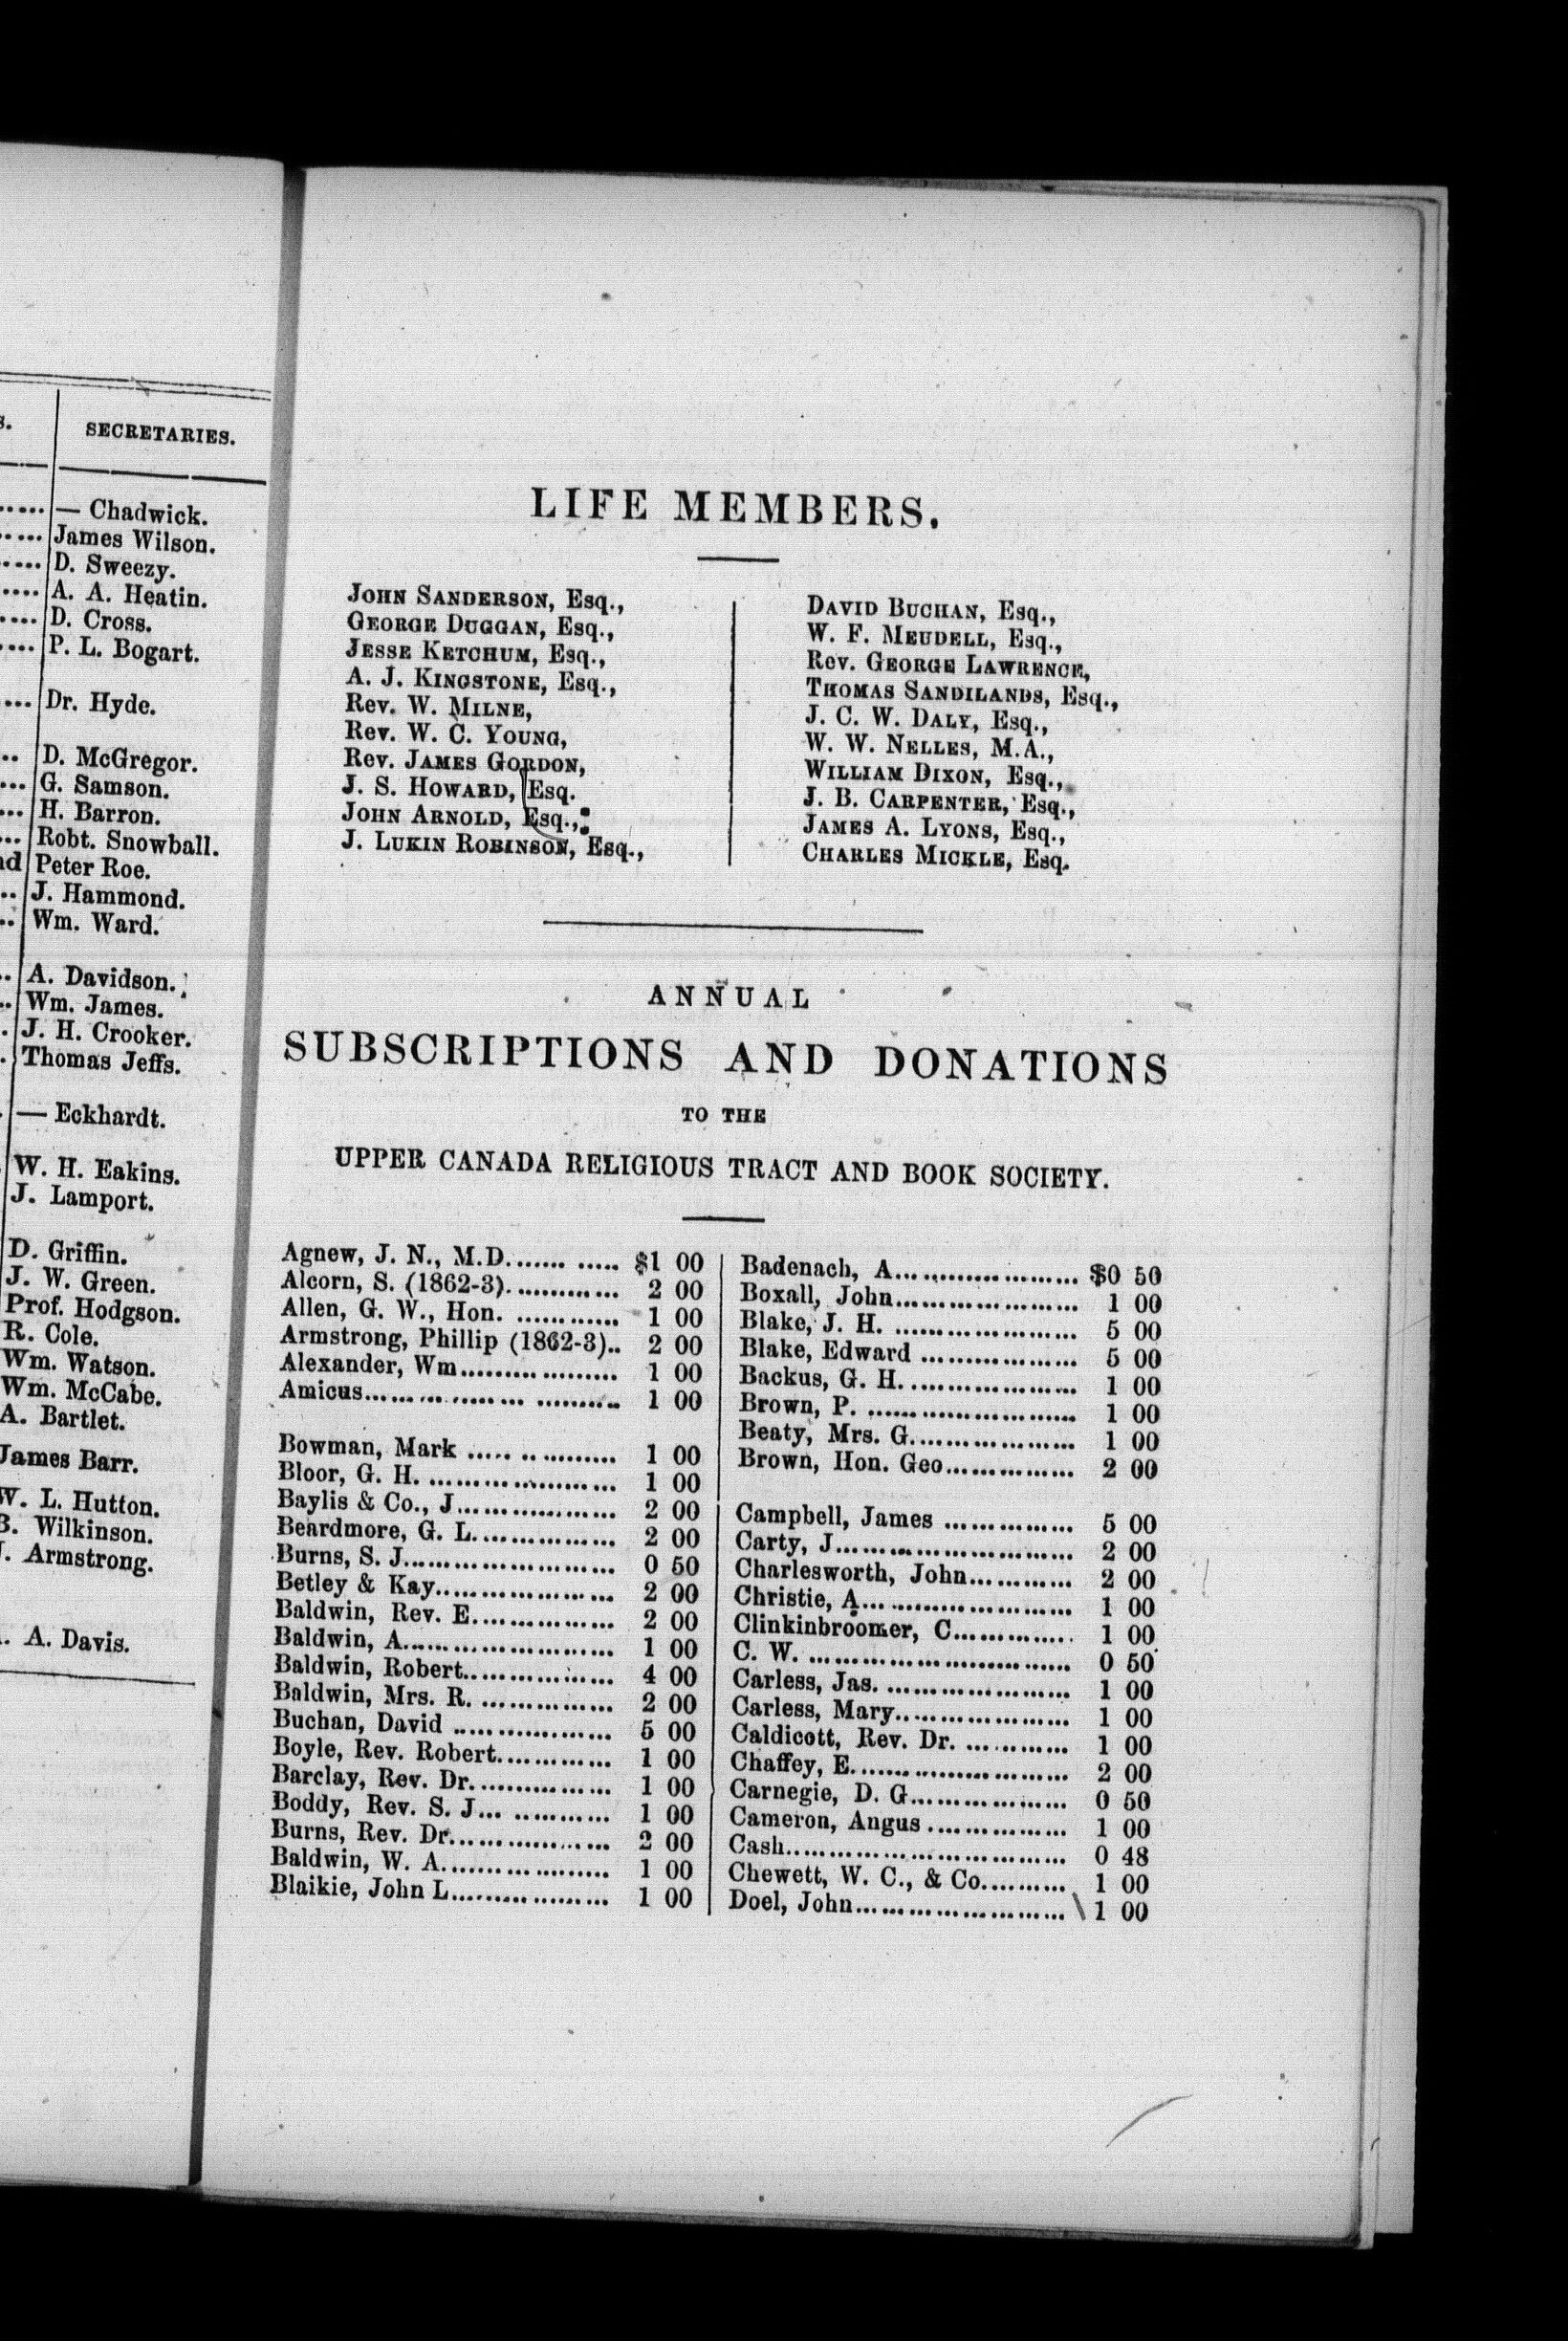 SECRETARIES.
— Chadwick.
James Wilson.
D. Sweezy.
A. A. Heatin.
D. Cross.
P. L. Bogart.
Dr. Hyde.
D. McGregor.
G. Samson.
H. Barron.
Robt. Snowball.
Peter Roe.
J. Hammond.
Wm. Ward.
A. Davidson.
Wm. James.
J. H. Crooker.
Thomas Jeffs.
— Eckhardt.
W. H. Eakins.
J. Lamport.
D. Griffin.
J. W. Green.
Prof. Hodgson.
R. Cole.
Wm. Watson.
Wm. McCabe.
A. Bartlet.
James Barr.
W. L. Hutton.
B. Wilkinson.
Armstrong.
A. Davis.
LIFE MEMBERS.
JOHN SANDERSON, Esq.,
GEORGE DUGGAN, Esq.,
JESSE KETCHUM, Esq.,
A. J. KINGSTONE, Esq.,
Rev. W. MILNE,
Rev. W. C. YOUNG,
Rev. JAMES GORDON,
J. S. HOWARD, Esq.
JOHN ARNOLD, Esq.,
J. LUKIN ROBINSON, Esq.,
DAVID BUCHAN, Esq.,
W. F. MEUDELL, Esq.,
Rev. GEORGE LAWRENCE,
THOMAS SANDILANDS, Esq.,
J. C. W. DALY, Esq.,
W. W. NELLES, M.A.,
WILLIAM DIXON, Esq.,
J. B. CARPENTER, Esq.,
JAMES A. LYONS, Esq.,
CHARLES MICKLE, Esq.
ANNUAL
SUBSCRIPTIONS AND DONATIONS
TO THE
UPPER CANADA RELIGIOUS TRACT AND BOOK SOCIETY.
Agnew, J. N., M.D............ $1 00
Alcorn, S. (1862-3)............ 2 00
Allen, G. W., Hon. ............ 1 00
Armstrong, Phillip (1862-3).. 2 00
Alexander, Wm.................. 1 00
Amicus.............................. 1 00
Bowman, Mark .................. 1 00
Bloor, G. H. ..................... 1 00
Baylis & Co., J.................. 2 00
Beardmore, G. L................ 2 00
Burns, S. J........................ 0 50
Betley & Kay.................... 2 00
Baldwin, Rev. E................ 2 00
Baldwin, A........................ 1 00
Baldwin, Robert................. 4 00
Baldwin, Mrs. R. ............... 2 00
Buchan, David .................. 5 00
Boyle, Rev. Robert............. 1 00
Barclay, Rev. Dr................ 1 00
Boddy, Rev. S. J............... 1 00
Burns, Rev. Dr.................. 2 00
Baldwin, W. A................... 1 00
Blaikie, John L.................. 1 00
Badenach, A..................... $0 50
Boxall, John..................... 1 00
Blake, J. H. ..................... 5 00
Blake, Edward .................. 5 00
Backus, G. H.................... 1 00
Brown, P. ........................ 1 00
Beaty, Mrs. G................... 1 00
Brown, Hon. Geo............... 2 00
Campbell, James ............... 5 00
Carty, J........................... 2 00
Charlesworth, John............ 2 00
Christie, A........................ 1 00
Clinkinbroomer, C.............. 1 00
C. W. .............................. 0 50
Carless, Jas. ..................... 1 00
Carless, Mary.................... 1 00
Caldicott, Rev. Dr. ............ 1 00
Chaffey, E........................ 2 00
Carnegie, D. G.................. 0 50
Cameron, Angus ................ 1 00
Cash................................ 0 48
Chewett, W. C., & Co.......... 1 00
Doel, John........................ 1 00